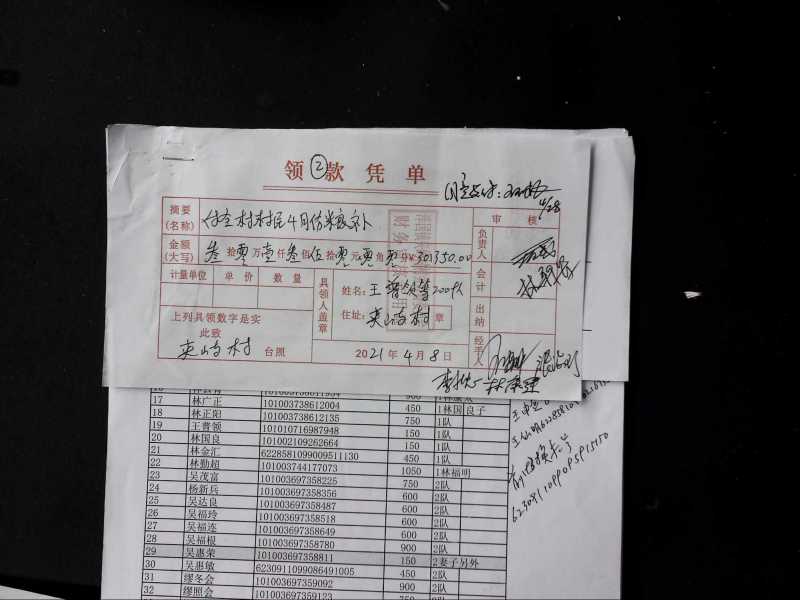 领②款凭单
4/28
摘要(名称) 付全村村民4月份米粮补
审核
金额(大写) 叁拾零万壹仟叁佰伍拾零元零角零分¥301350.00
负责人
计量单位 单价 数量
具领人盖章
姓名:王普领等2009人
会计
住址:夹山沟村 章
出纳
上列具领数字是实
此致
夹山沟村 台照
2021年4月8日
经手人
17 林广正 101003738612004 450 1林国良子
18 林正阳 101003738612135 750 1队
19 王普领 101010716987948 150 1队
20 林国良 101002109262664 150 1队
21 林金汇 6228581099009511130 450 1队
22 林勤超 101003744177073 1050 1林福明
23 吴茂富 101003697358225 750 2队
24 杨新兵 101003697358356 600 2队
25 吴达良 101003697358487 600 2队
26 吴福玲 101003697358518 600 2队
27 吴福连 101003697358649 600 2队
28 吴福根 101003697358780 900 2队
29 吴惠荣 101003697358811 150 2妻子另外
30 吴惠敏 6230911099086491005 450 2队
31 缪冬会 101003697359092 900 2队
32 缪照会 101003697359123 750 2队
6230911099085915150